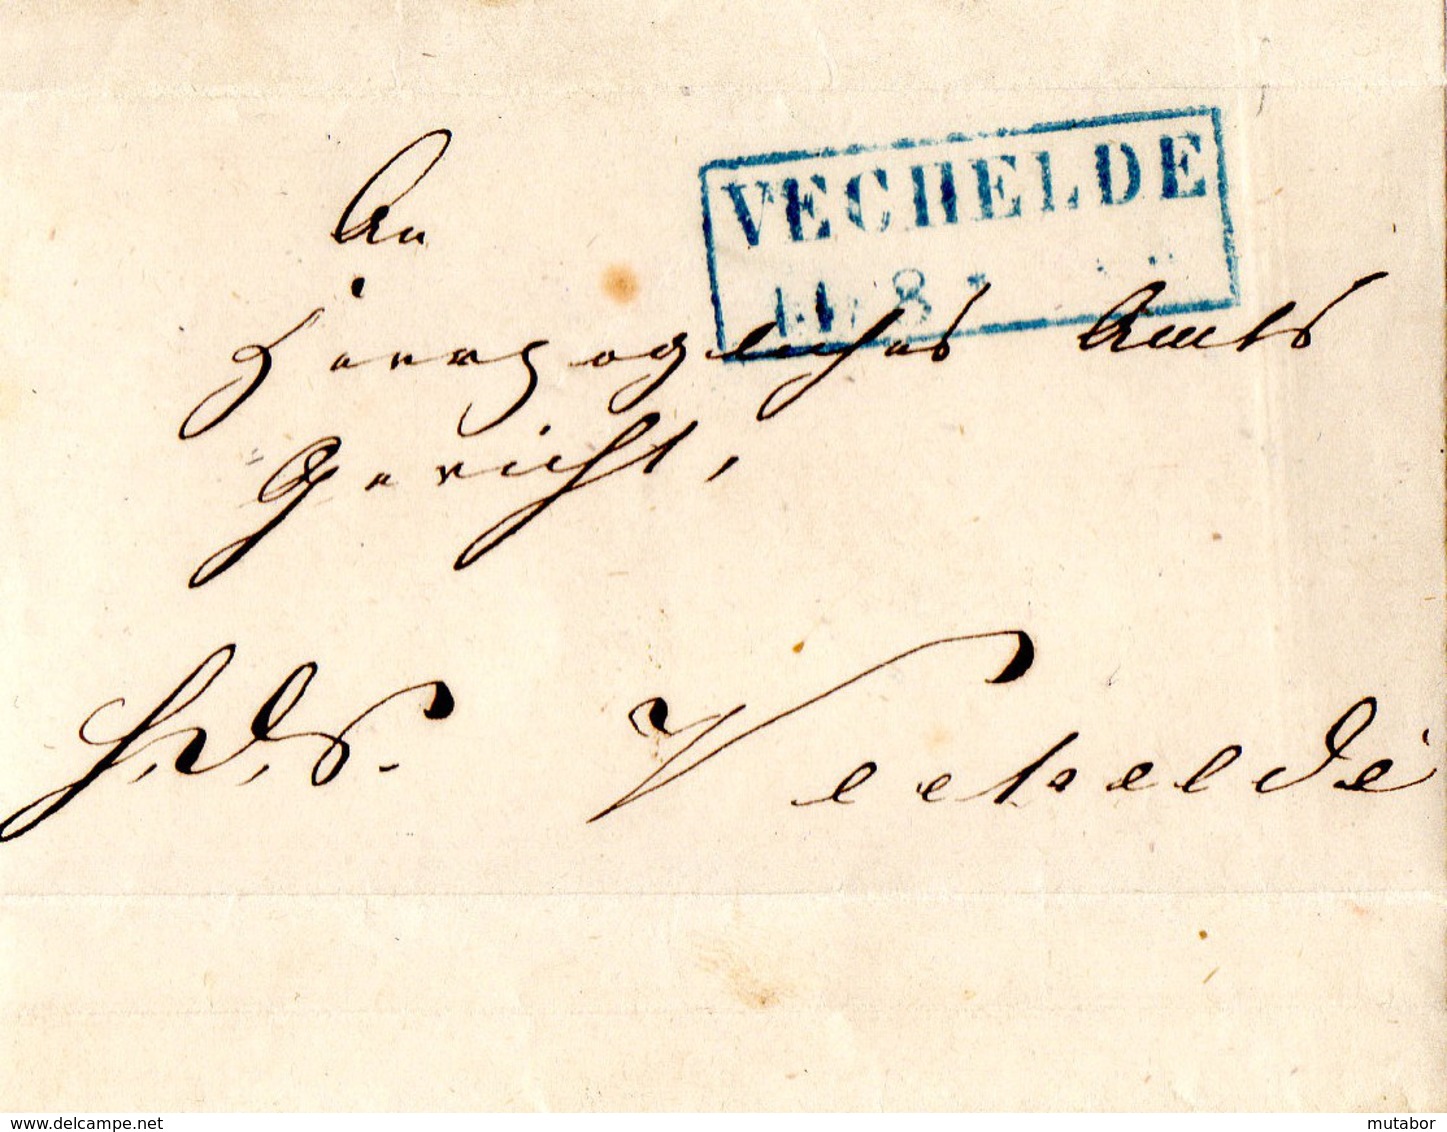 An
VECHELDE
11 8 *
Herzogliches Amts
Gericht,
H. D. S.
Vechelde
www.delcampe.net
mutabor